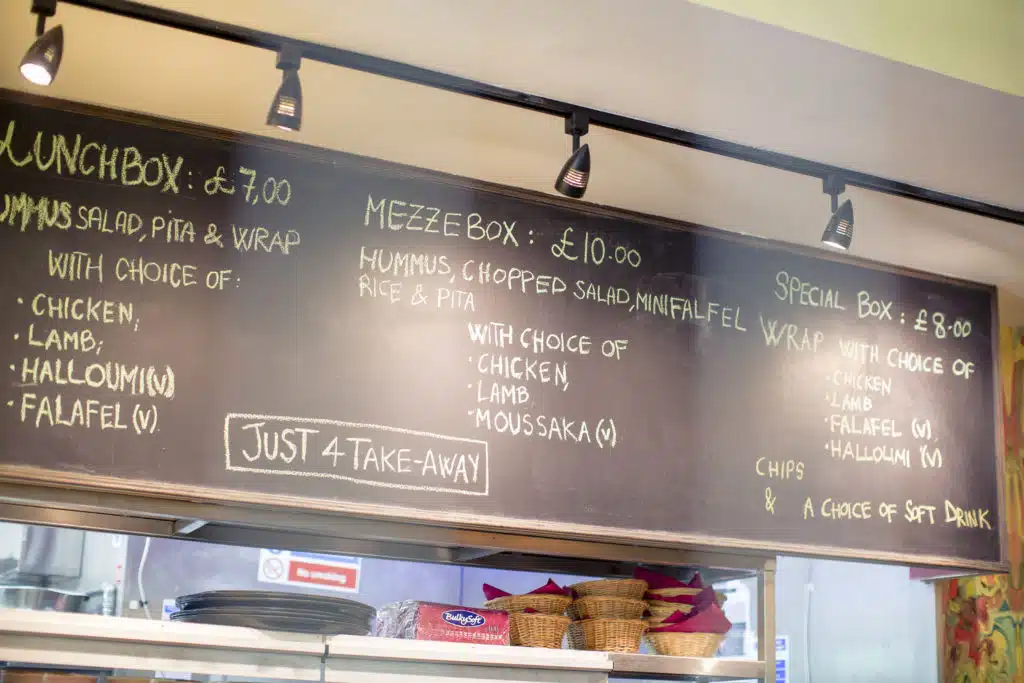 LUNCHBOX: £7,00
SALAD, PITA & WRAP
WITH CHOICE OF:
• CHICKEN,
• LAMB;
• HALLOUMI(V)
• FALAFEL(V)
JUST 4 TAKE-AWAY
MEZZE BOX: £10.00
HUMMUS, CHOPPED SALAD, MINIFALFEL
RICE & PITA
WITH CHOICE OF
• CHICKEN,
• LAMB
• MOUSSAKA(V)
SPECIAL BOX: £8.00
WRAP WITH CHOICE OF
• CHICKEN
• LAMB
• FALAFEL (V)
• HALLOUMI (V)
CHIPS
& A CHOICE OF SOFT DRINK
No smoking
BulkySoft